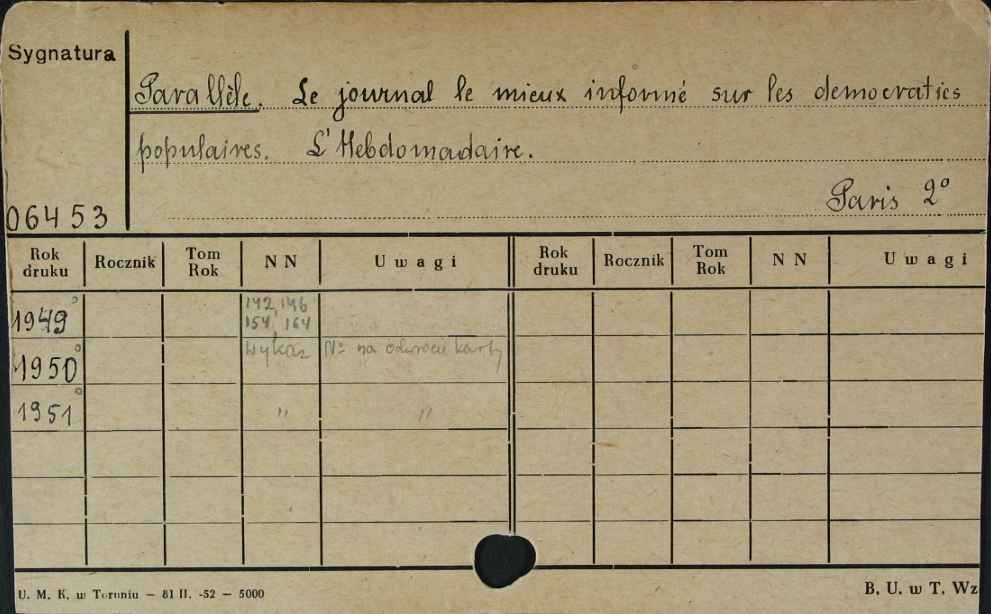 Sygnatura
Parallèle. Le journal le mieux informé sur les democraties
populaires. L'Hebdomadaire.
Paris 2°
06453
Rok druku Rocznik Tom Rok N N Uwagi Rok druku Rocznik Tom Rok N N Uwagi
1949° 142, 146
154, 164
1950° Wykaz No na odwrocie karty
1951° " "
U. M. K. w Toruniu – 81 II. -52 – 5000
B. U. w T. Wz